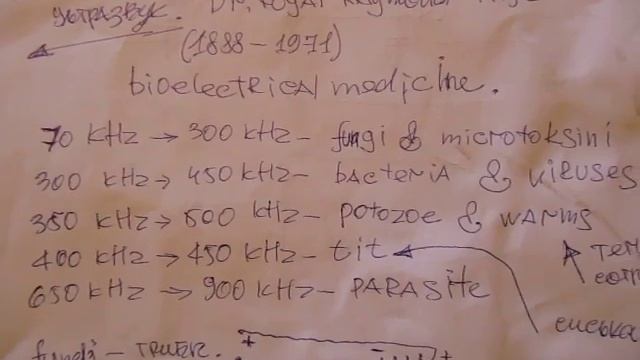 ултразвук. Dr. Royal Raymond
(1888-1971)
bioelectrical medicine.
70 KHz → 300 KHz - fungi & microtoksini
300 KHz → 450 KHz - bacteria & viruses
350 KHz → 500 KHz - potozoe & warms
400 KHz → 450 KHz - tit
650 KHz → 900 KHz - PARASite